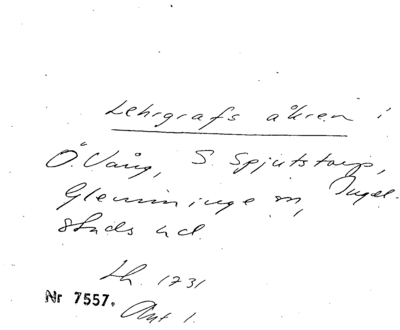 Lehrgrafs åkern i
Ö. Vång, S. Spjutstorp,
Glemminge sn, Ingel-
stads hd.
Lh. 1731
Nr 7557. Akt 1.